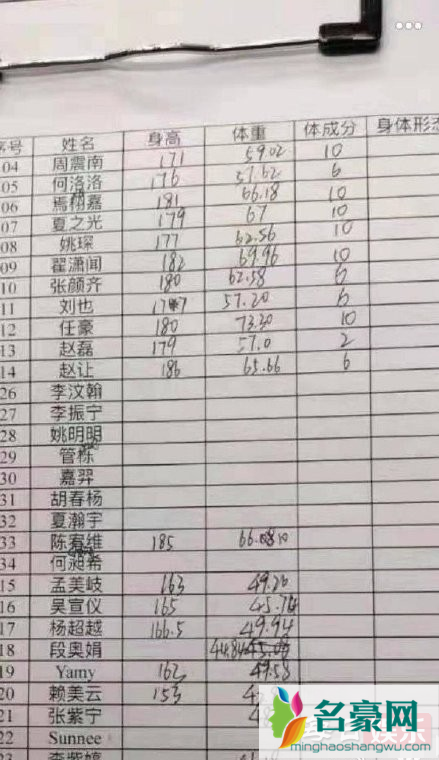 序号 姓名 身高 体重 体成分 身体形态
04 周震南 171 59.02 10
05 何洛洛 176 57.62 6
06 焉栩嘉 181 66.18 10
07 夏之光 179 67 10
08 姚琛 177 62.56 10
09 翟潇闻 182 69.96 10
10 张颜齐 180 62.58 6
11 刘也 57.20 6
12 任豪 180 73.30 10
13 赵磊 179 57.0 2
14 赵让 186 65.66 6
26 李汶翰
27 李振宁
28 姚明明
29 管栎
30 嘉羿
31 胡春杨
32 夏瀚宇
33 陈宥维 185 66.08 10
34 何昶希
15 孟美岐 163 49.20
16 吴宣仪 165 45.74
17 杨超越 166.5 49.94
18 段奥娟 44.84
19 Yamy 162 49.58
20 赖美云 153
21 张紫宁
22 Sunnee
23 李紫婷
名豪网
minghaoshangmao.com